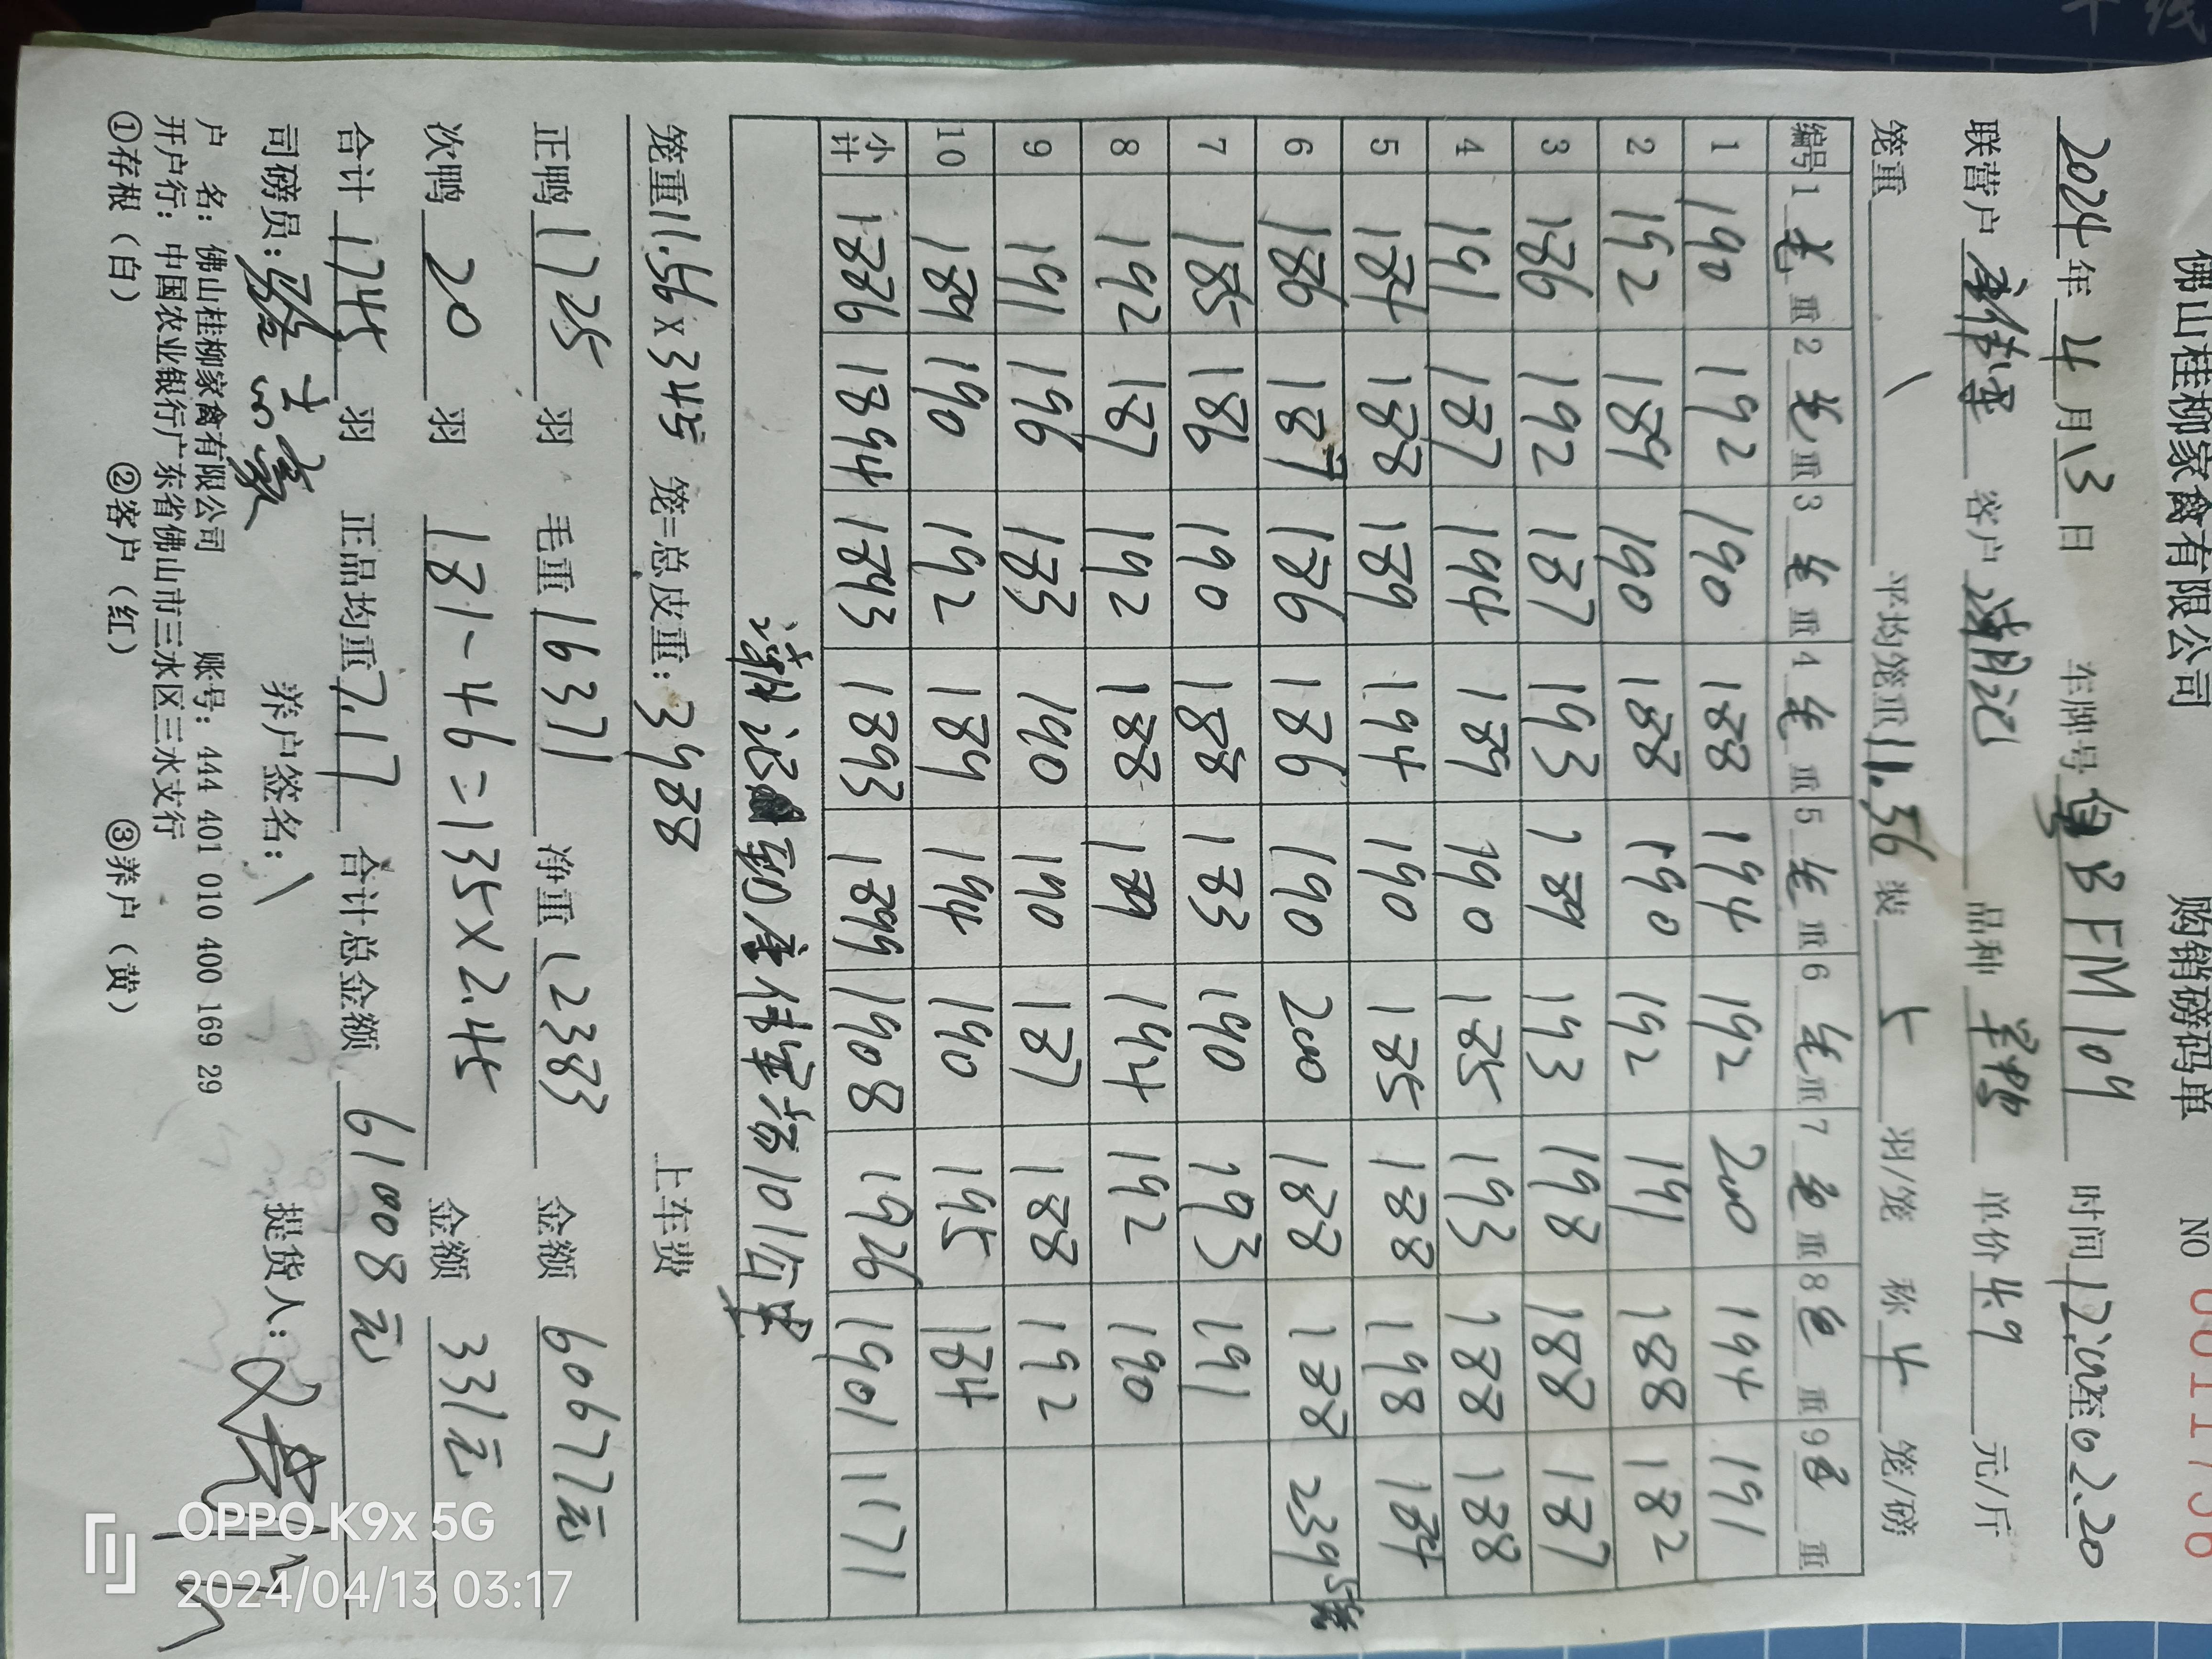 佛山桂柳家禽有限公司 购销磅码单 NO
2024年4月13日 车牌号粤BFM109 时间
联营户 客户 满记 品种 单价4.9元/斤
笼重 \ 平均笼重11.56装5羽/笼 称4笼/磅
编号 1毛重 2毛重 3毛重 4毛重 5毛重 6毛重 7毛重 8毛重 9毛重
1 190 192 190 188 194 192 200 194 191
2 192 189 190 188 190 192 191 188 182
3 186 192 187 193 189 193 198 188 187
4 191 187 194 189 190 185 193 188 188
5 184 188 189 194 190 185 188 198 184
6 186 187 186 186 190 200 188 188 239 5笼
7 185 186 190 188 183 190 193 191
8 192 187 192 188 189 194 192 190
9 191 196 183 190 190 187 188 192
10 189 190 192 189 194 190 195 184
小计 1886 1894 1893 1893 1899 1908 1926 1901 1171
满记
笼重11.56×345笼=总皮重:3988 上车费
正鸭1725羽 毛重16371 净重12383 金额60677元
次鸭20羽 181-46=135×2.45 金额331元
合计1745羽 正品均重7.17 合计总金额61008元
司磅员: 养户签名:\ 提货人:
户 名:佛山桂柳家禽有限公司 账号:444 401 010 400 169 29
开户行:中国农业银行广东省佛山市三水区三水支行
①存根(白) ②客户(红) ③养户(黄)
OPPO K9x 5G
2024/04/13 03:17